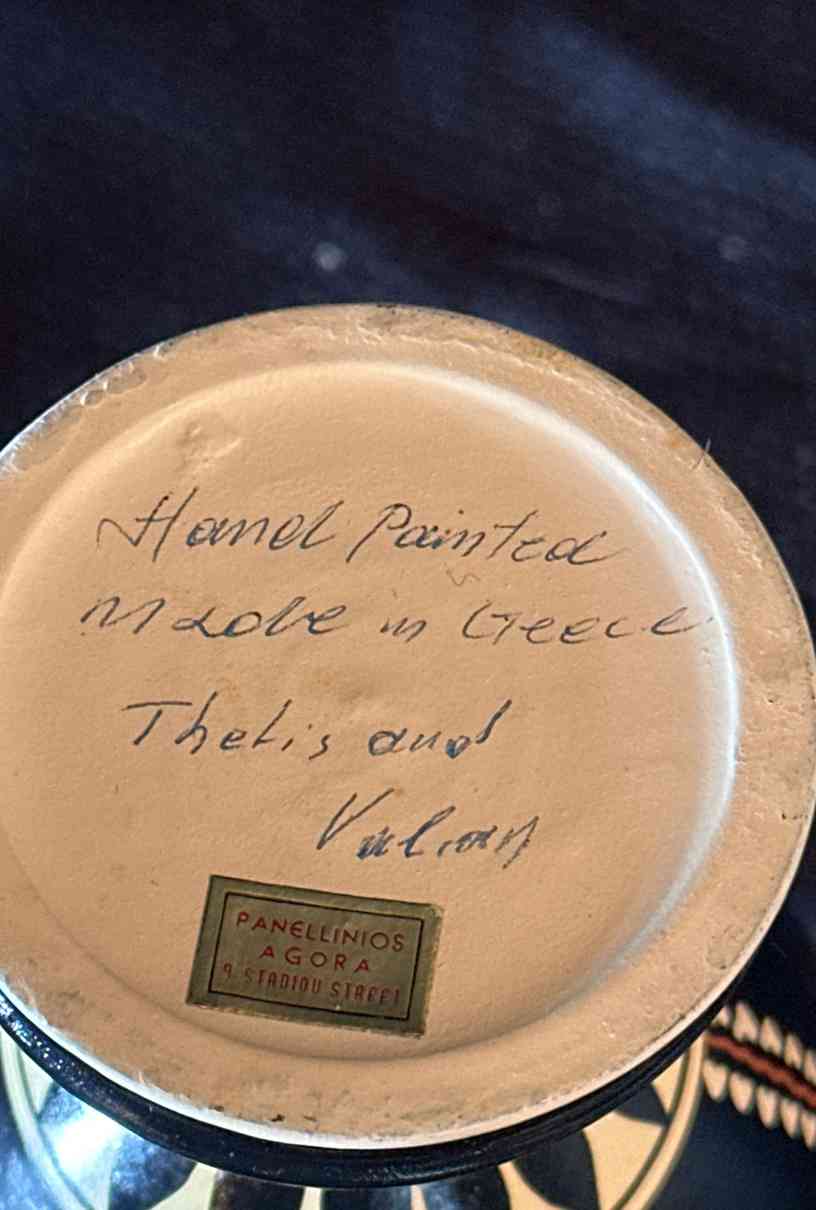 Hand Painted
Made in Greece
Thetis and
Vulcan
PANELLINIOS
AGORA
9 STADIOU STREET